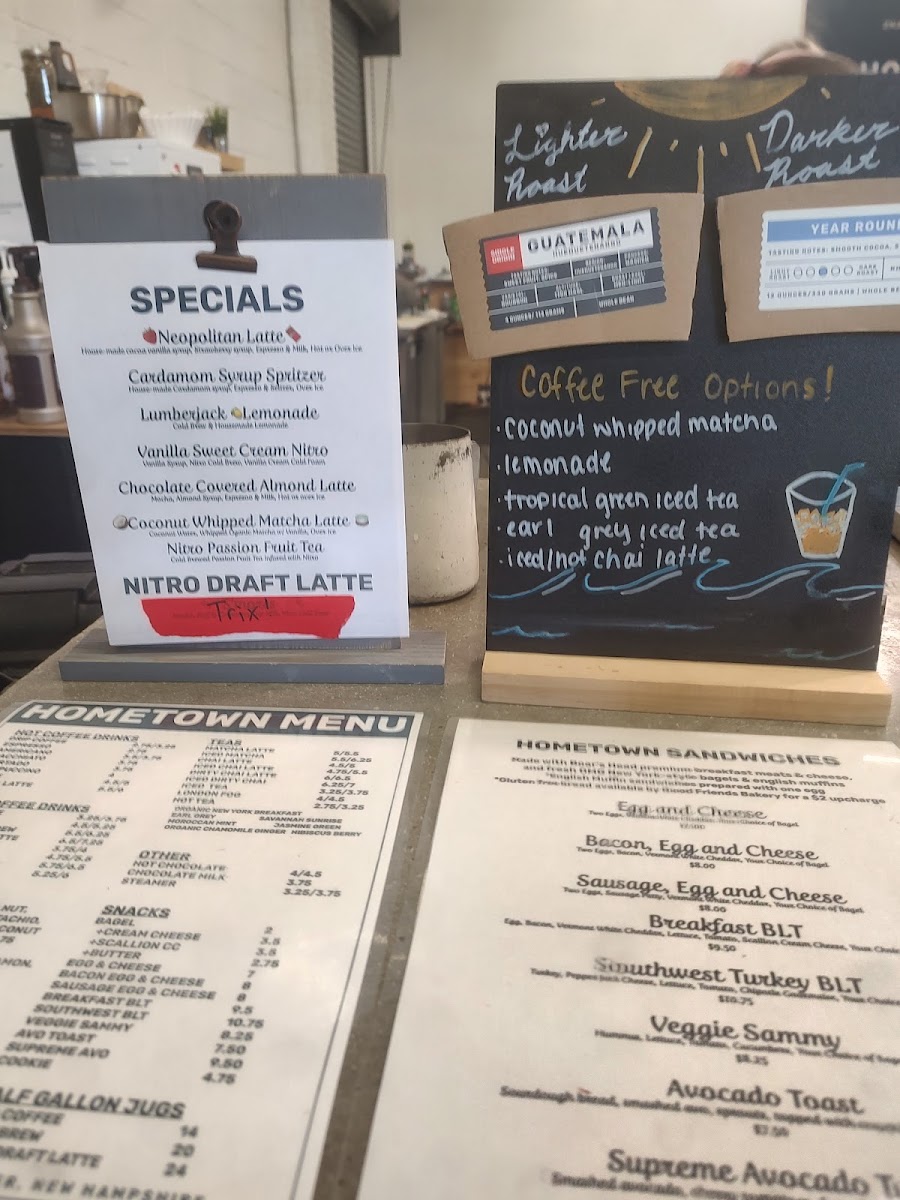 SPECIALS
Neopolitan Latte
House-made cocoa vanilla syrup, Strawberry syrup, Espresso & Milk, Hot or Over Ice
Cardamom Syrup Spritzer
House-made Cardamom syrup, Espresso & Seltzer, Over Ice
Lumberjack Lemonade
Cold Brew & Housemade Lemonade
Vanilla Sweet Cream Nitro
Vanilla Syrup, Nitro Cold Brew, Vanilla Cream Cold Foam
Chocolate Covered Almond Latte
Mocha, Almond Syrup, Espresso & Milk, Hot or over Ice
Coconut Whipped Matcha Latte
Coconut Water, Whipped Organic Matcha w/ Vanilla, Over Ice
Nitro Passion Fruit Tea
Cold Brewed Passion Fruit Tea infused with Nitro
NITRO DRAFT LATTE
Trix!
Lighter
Roast
Darker
Roast
SINGLE
ORIGIN
GUATEMALA
HUEHUETENANGO
TASTING NOTES:
WHOLE BEAN
4 OUNCES/114 GRAMS
YEAR ROUN
TASTING NOTES: SMOOTH COCOA, S
LIGHT
ROAST
DARK
ROAST
12 OUNCES/330 GRAMS | WHOLE BE
Coffee Free Options!
· coconut whipped matcha
· lemonade
· tropical green iced tea
· earl grey iced tea
· iced/hot chai latte
HOMETOWN MENU
HOT COFFEE DRINKS
DRIP COFFEE 2.75/3.25
ESPRESSO 2.75
AMERICANO 3.5/3.75
ACCHIATO
RTADO
PUCCINO
LATTE
OFFEE DRINKS
3.25/3.75
4.5/5.25
EW 5.5/6.25
TTE 6.5/7.25
3.75/4
4.75/5.5
5.75/6.5
5.25/6
NUT,
TACHIO,
CONUT
.75
AMON,
TEAS
MATCHA LATTE 5/5.5
ICED MATCHA 5.5/6.25
CHAI LATTE 4.5/5
ICED CHAI LATTE 4.75/5.5
DIRTY CHAI LATTE 6/6.5
ICED DIRTY CHAI 6.25/7
ICED TEA 3.25/3.75
LONDON FOG 4/4.5
HOT TEA 2.75/3.25
ORGANIC NEW YORK BREAKFAST
EARL GREY SAVANNAH SUNRISE
MOROCCAN MINT JASMINE GREEN
ORGANIC CHAMOMILE GINGER HIBISCUS BERRY
OTHER
HOT CHOCOLATE 4/4.5
CHOCOLATE MILK 3.75
STEAMER 3.25/3.75
SNACKS
BAGEL 2
+CREAM CHEESE 3.5
+SCALLION CC 3.5
+BUTTER 2.75
EGG & CHEESE 7
BACON EGG & CHEESE 8
SAUSAGE EGG & CHEESE 8
BREAKFAST BLT 9.5
SOUTHWEST BLT 10.75
VEGGIE SAMMY 8.25
AVO TOAST 7.50
SUPREME AVO 9.50
COOKIE 4.75
ALF GALLON JUGS
COFFEE 14
BREW 20
DRAFT LATTE 24
R, NEW HAMPSHIRE
HOMETOWN SANDWICHES
Made with Boar's Head premium breakfast meats & cheese,
and fresh OMG New York-style bagels & english muffins
*English muffin sandwiches prepared with one egg
*Gluten free bread available by Good Friends Bakery for a $2 upcharge
Egg and Cheese
Two Eggs, Vermont White Cheddar, Your Choice of Bagel
$7.00
Bacon, Egg and Cheese
Two Eggs, Bacon, Vermont White Cheddar, Your Choice of Bagel
$8.00
Sausage, Egg and Cheese
Two Eggs, Sausage Patty, Vermont White Cheddar, Your Choice of Bagel
$8.00
Breakfast BLT
Egg, Bacon, Vermont White Cheddar, Lettuce, Tomato, Scallion Cream Cheese, Your Choice
$9.50
Southwest Turkey BLT
Turkey, Pepper Jack Cheese, Lettuce, Tomato, Chipotle Guacamole, Your Choice
$10.75
Veggie Sammy
Hummus, Lettuce, Tomato, Cucumbers, Your Choice of Bagel
$8.25
Avocado Toast
Sourdough bread, smashed avo, sprouts, topped with
$7.50
Supreme Avocado T
Smashed avocado,